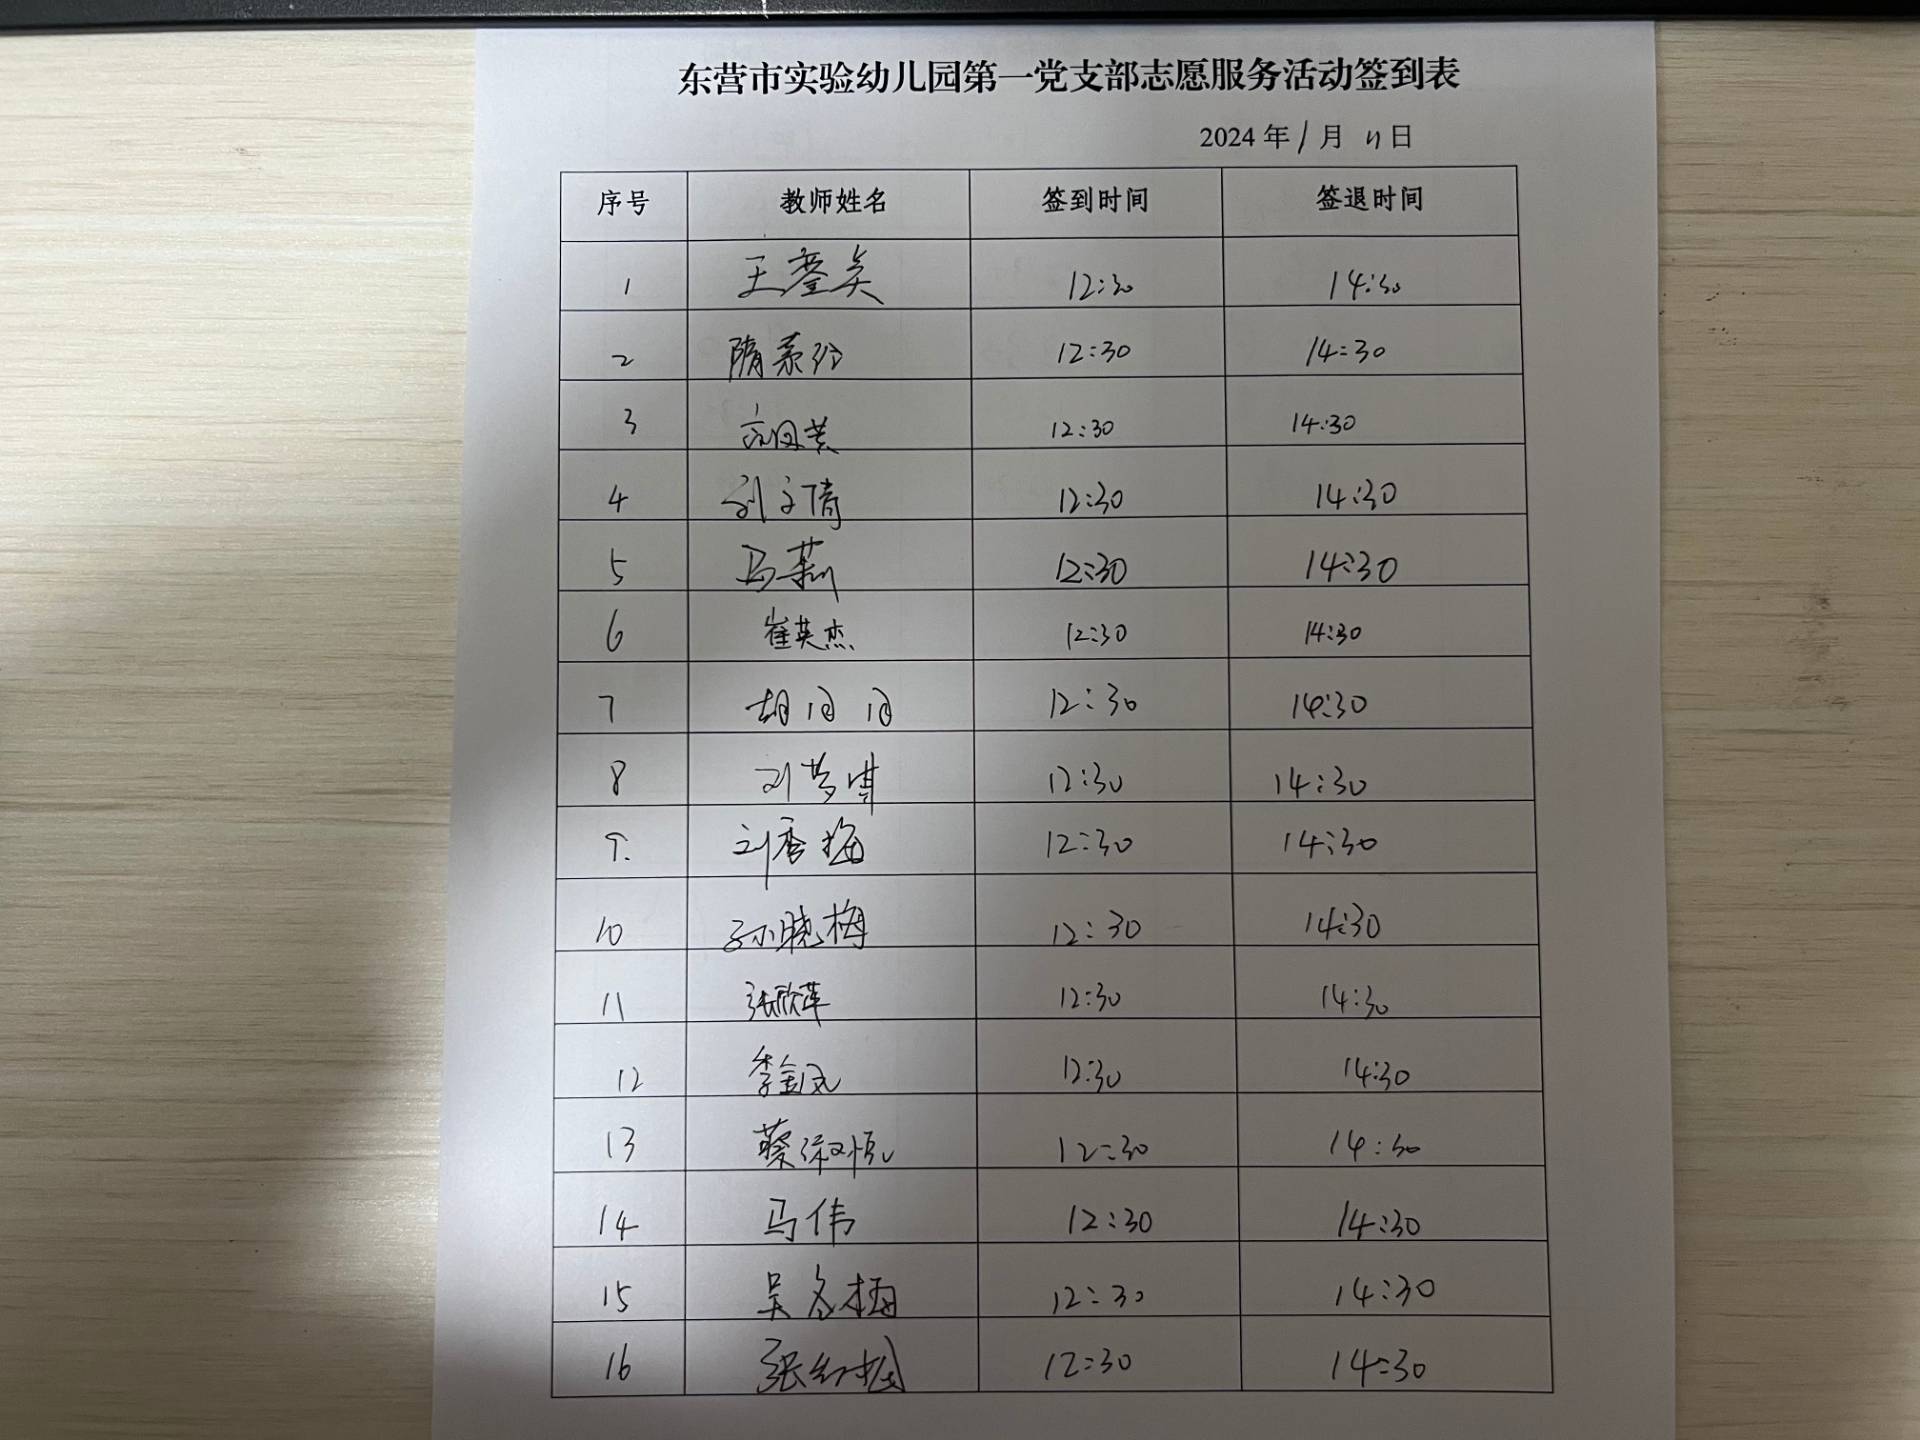 东营市实验幼儿园第一党支部志愿服务活动签到表
2024 年 1 月 11 日
序号 教师姓名 签到时间 签退时间
1 王 12:30 14:30
2 隋 12:30 14:30
3 12:30 14:30
4 刘文倩 12:30 14:30
5 马莉 12:30 14:30
6 崔英杰 12:30 14:30
7 胡 12:30 14:30
8 刘梦琪 12:30 14:30
9. 刘秀梅 12:30 14:30
10 孙晓梅 12:30 14:30
11 张欣苹 12:30 14:30
12 李金凤 12:30 14:30
13 蔡淑悦 12:30 14:30
14 马伟 12:30 14:30
15 吴冬梅 12:30 14:30
16 张红梅 12:30 14:30